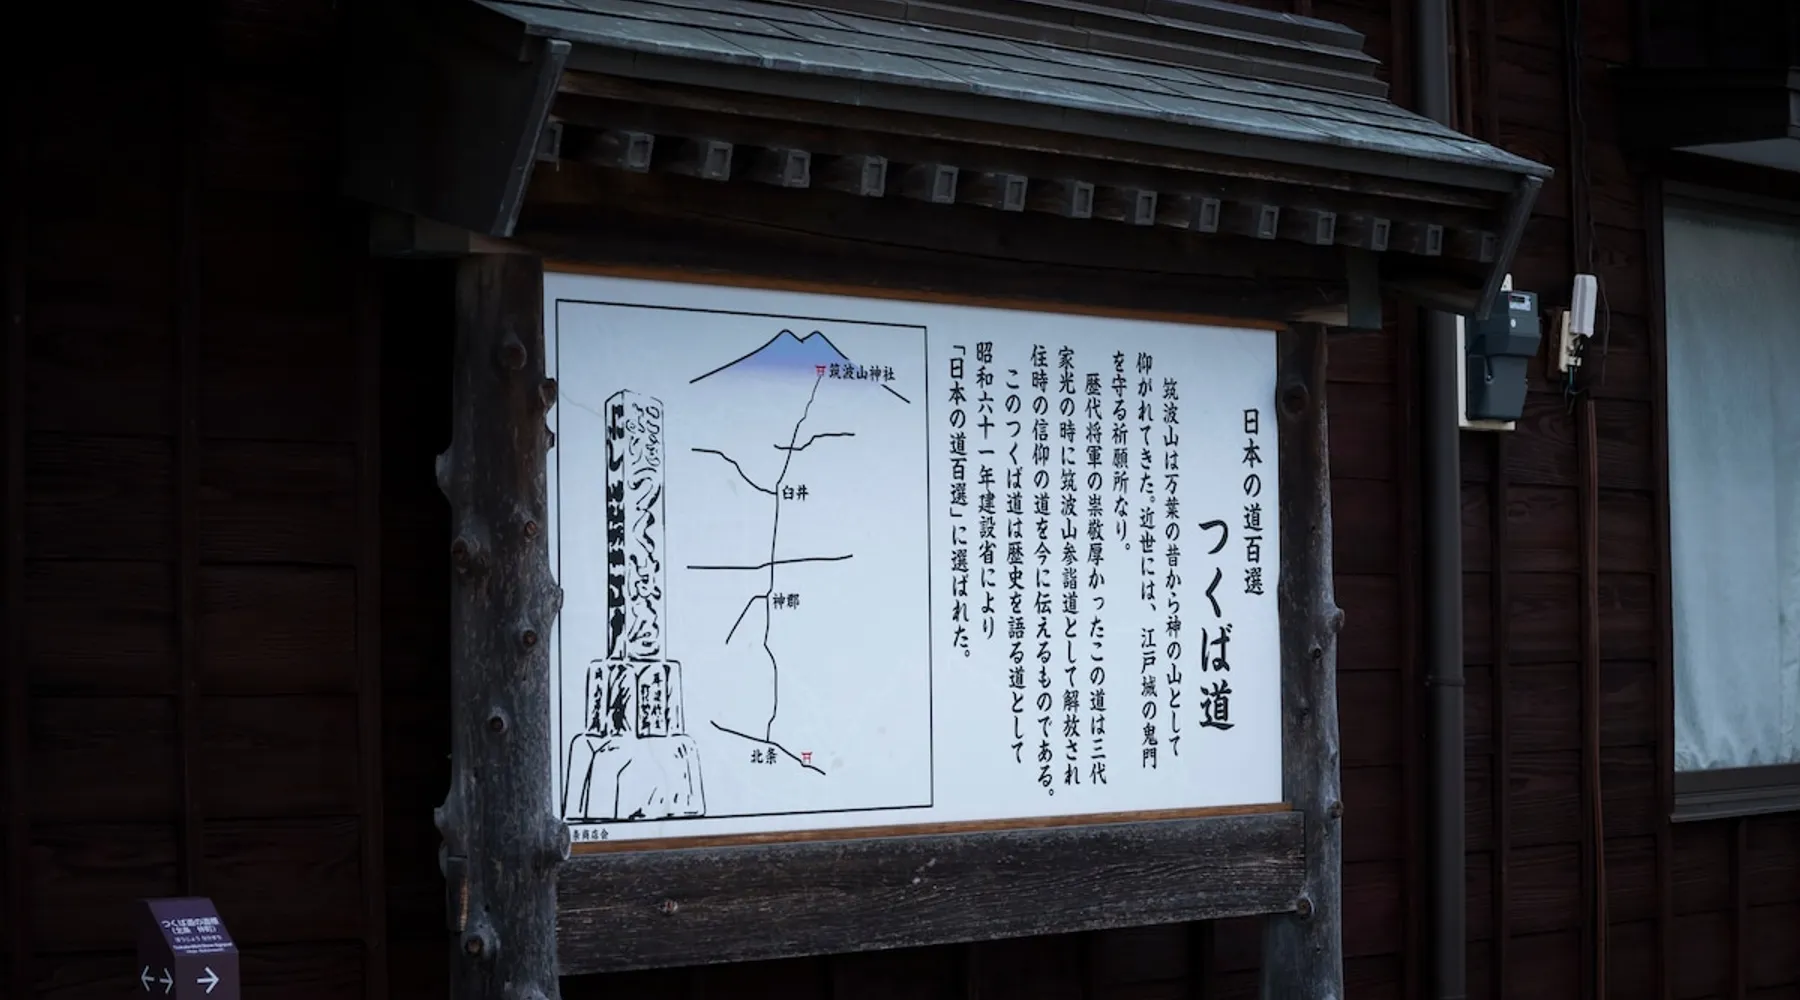 日本の道百選
つくば道
筑波山は万葉の昔から神の山として
仰がれてきた。近世には、江戸城の鬼門
を守る祈願所なり。
歴代将軍の崇敬厚かったこの道は三代
家光の時に筑波山参詣道として解放され
往時の信仰の道を今に伝えるものである。
このつくば道は歴史を語る道として
昭和六十一年建設省により
「日本の道百選」に選ばれた。
筑波山神社
臼井
神郡
北条
条商店会
つくば道の道標